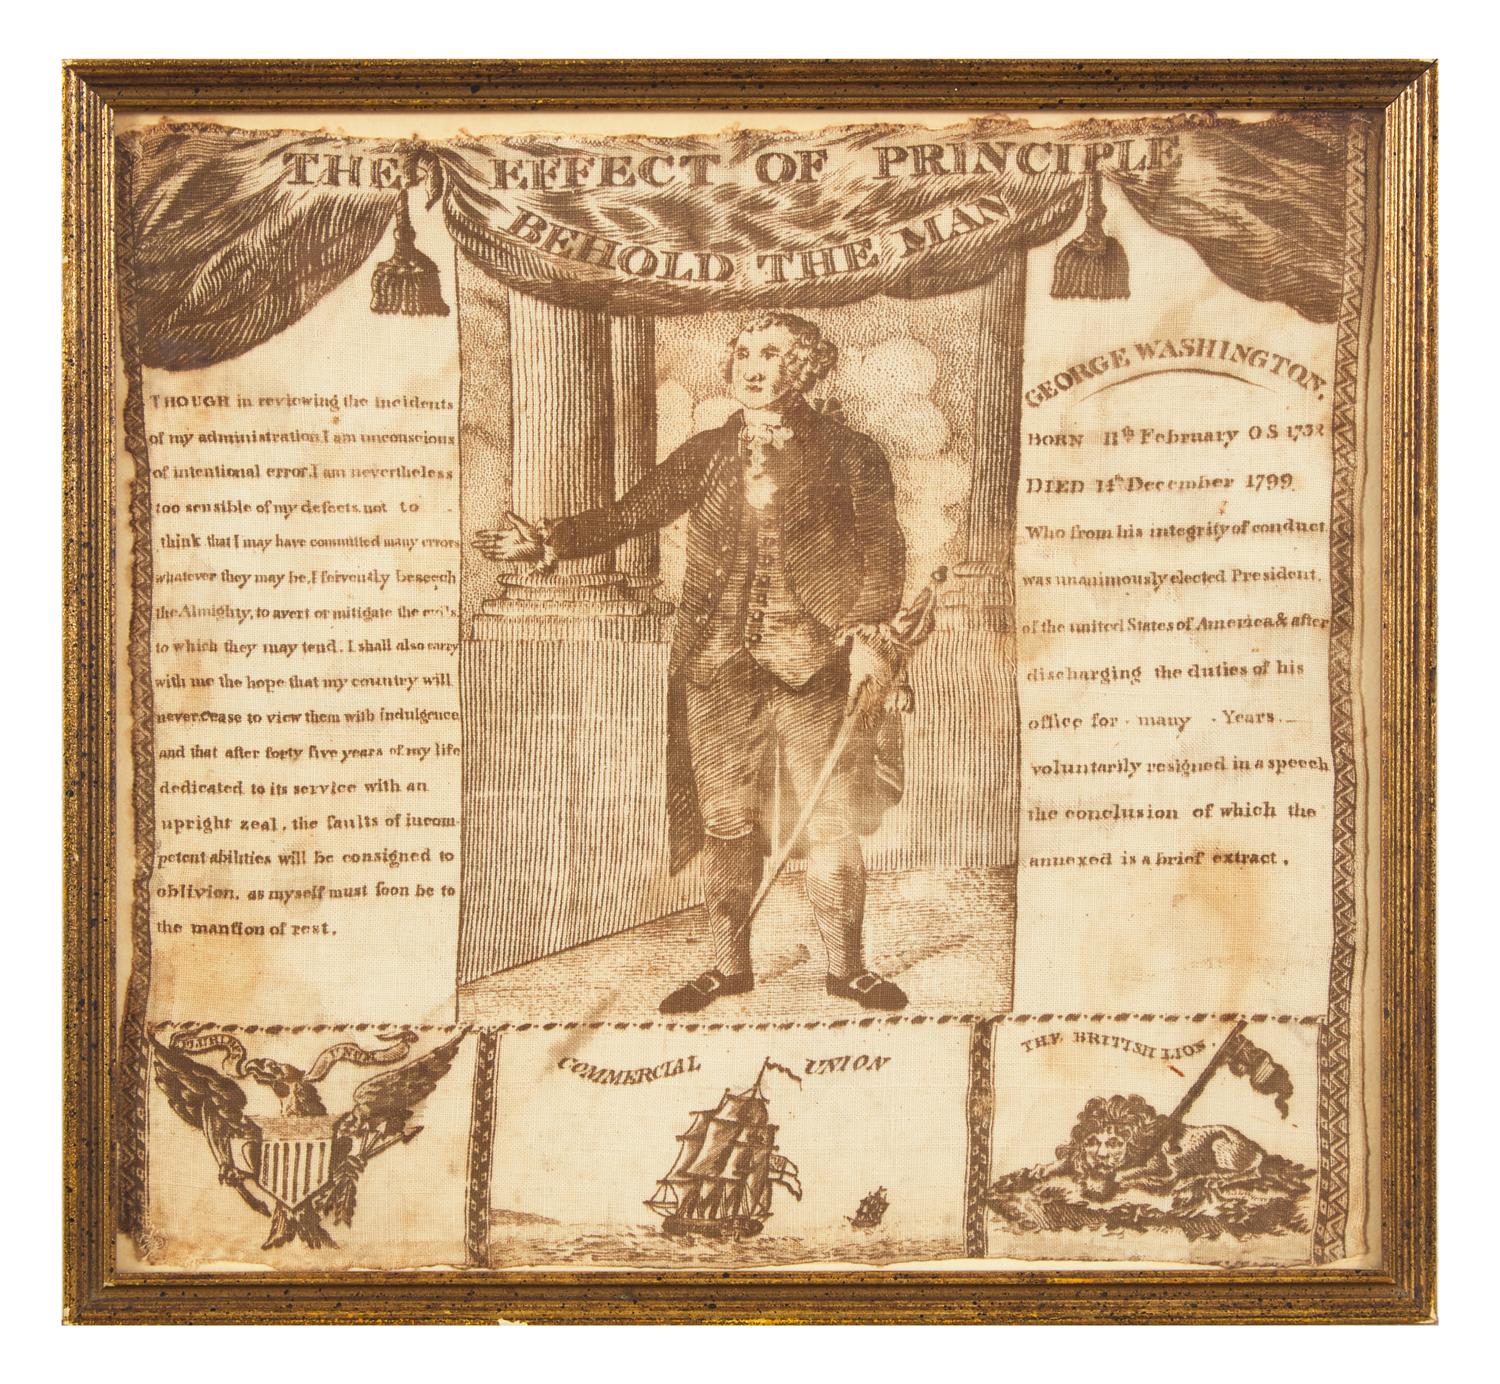 THE EFFECT OF PRINCIPLE
BEHOLD THE MAN
THOUGH in reviewing the incidents
of my administration, I am unconscious
of intentional error, I am nevertheless
too sensible of my defects, not to
think that I may have committed many errors
whatever they may be, I fervently beseech
the Almighty, to avert or mitigate the evils,
to which they may tend. I shall also carry
with me the hope that my country will
never cease to view them with indulgence,
and that after forty five years of my life
dedicated to its service with an
upright zeal, the faults of incom-
petent abilities will be consigned to
oblivion, as myself must soon be to
the mansion of rest.
GEORGE WASHINGTON,
BORN 11th February O S 1732
DIED 14th December 1799
Who from his integrity of conduct
was unanimously elected President,
of the united States of America & after
discharging the duties of his
office for many Years
voluntarily resigned in a speech
the conclusion of which the
annexed is a brief extract.
PLURIBUS UNUM
COMMERCIAL UNION
THE BRITISH LION.